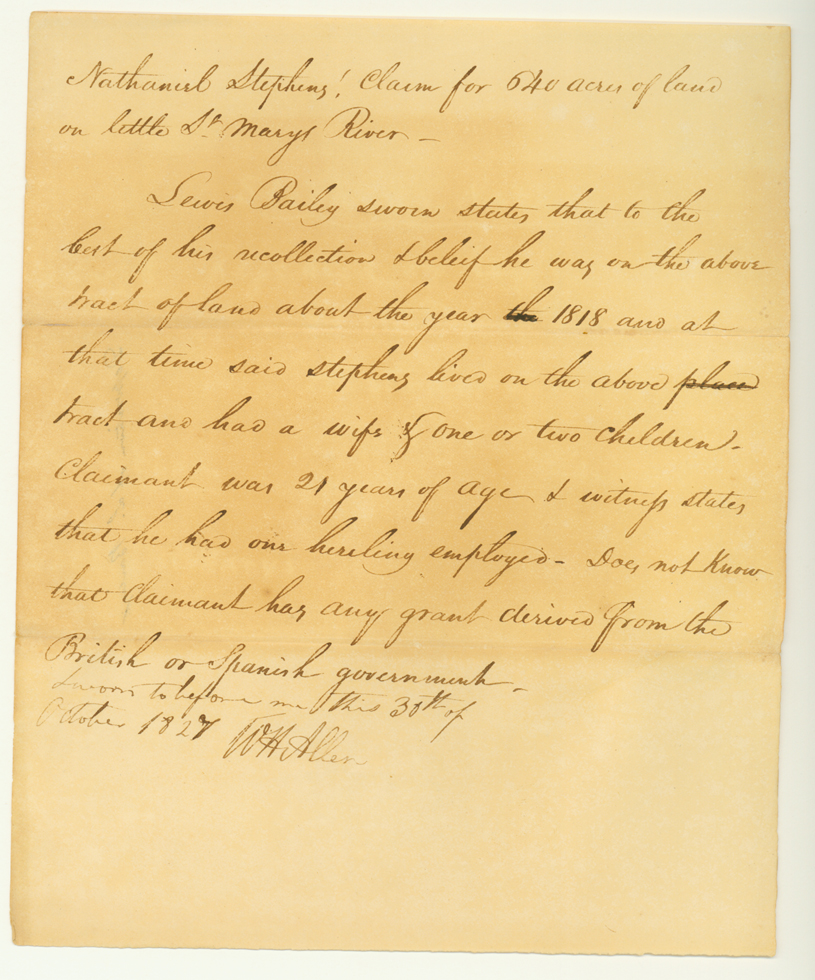 Nathaniel Stephens' Claim for 640 acres of land
on little St Marys River -
Lewis Bailey sworn states that to the
best of his recollection & beleif he was on the above
tract of land about the year the 1818 and at
that time said stephens lived on the above place
tract and had a wife & one or two children -
Claimant was 21 years of age & witness states
that he had one hereling employed - Does not Know
that Claimant has any grant derived from the
British or Spanish government -
Sworn to before me this 30th of
October 1827 W H Allen